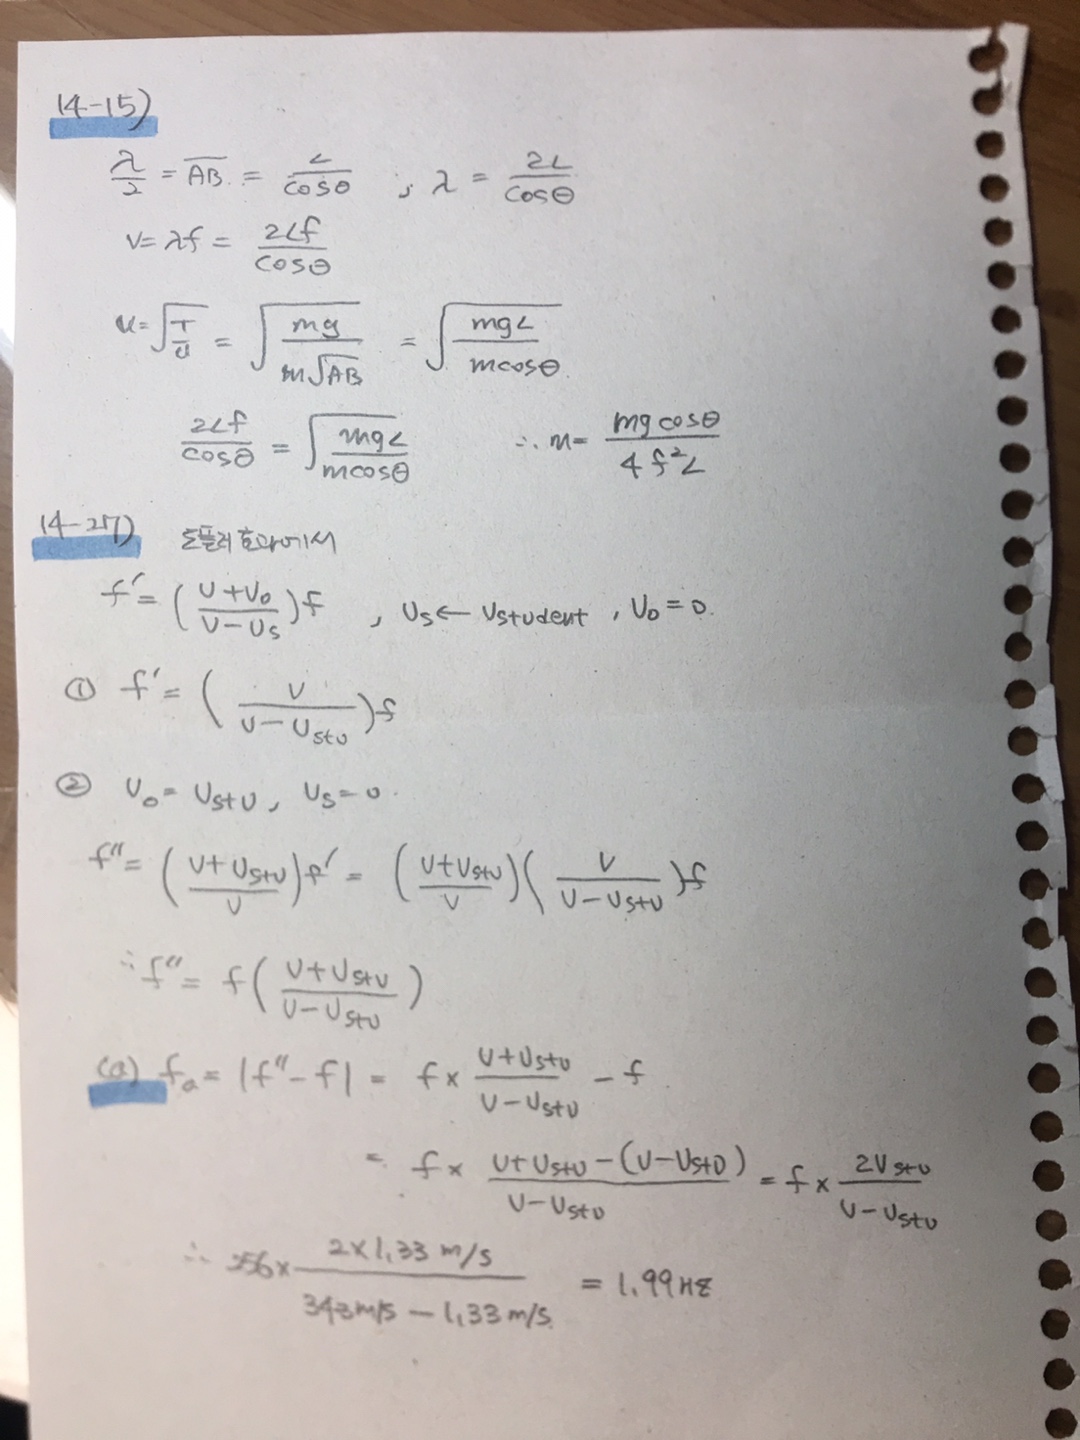 14-15)
λ/2 = A̅B̅. = L/cosθ , λ = 2L/cosθ
v = λf = 2Lf/cosθ
v = √(T/μ) = √(mg/(m√AB)) = √(mgL/(mcosθ))
2Lf/cosθ = √(mgL/(mcosθ)) ∴ m = mgcosθ/(4f²L)
14-27) 도플러 효과에서
f′ = ((v+v₀)/(v-vₛ))f , vₛ ← vstudent , v₀ = 0.
① f′ = (v/(v-vstu))f
② v₀ = vstu, vₛ = 0.
f″ = ((v+vstu)/v)f′ = ((v+vstu)/v)(v/(v-vstu))f
∴ f″ = f((v+vstu)/(v-vstu))
(a) fₐ = |f″-f| = f × (v+vstu)/(v-vstu) - f
= f × (v+vstu-(v-vstu))/(v-vstu) = f × 2vstu/(v-vstu)
∴ 256 × (2×1.33 m/s)/(343m/s - 1.33 m/s) = 1.99Hz